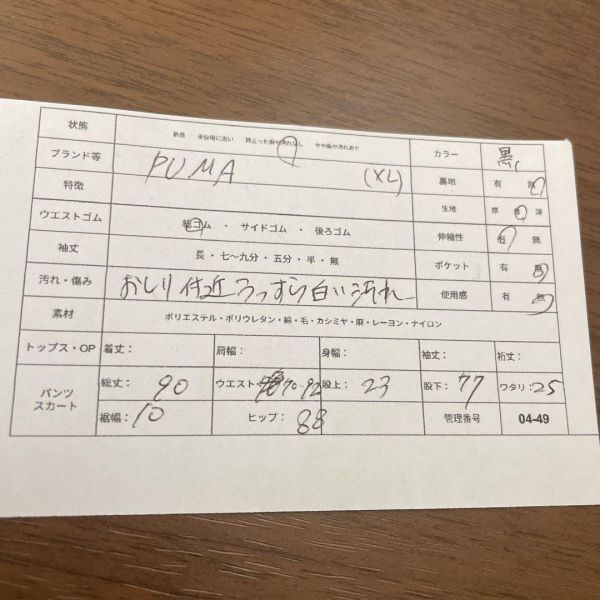 状態 新品 未使用に近い 目立った傷や汚れなし やや傷や汚れあり カラー 黒
ブランド等 PUMA (XL) 裏地 有 無
特徴 生地 厚 普 薄
ウエストゴム 総ゴム ・ サイドゴム ・ 後ろゴム 伸縮性 有 無
袖丈 長・七〜九分・五分・半・無 ポケット 有 無
汚れ・傷み おしり付近うっすら白い汚れ 使用感 有 無
素材 ポリエステル・ポリウレタン・綿・毛・カシミヤ・麻・レーヨン・ナイロン
トップス・OP 着丈: 肩幅: 身幅: 袖丈: 裄丈:
パンツ スカート 総丈: 90 ウエスト 70-92 股上: 23 股下: 77 ワタリ: 25
裾幅: 10 ヒップ: 88 管理番号 04-49